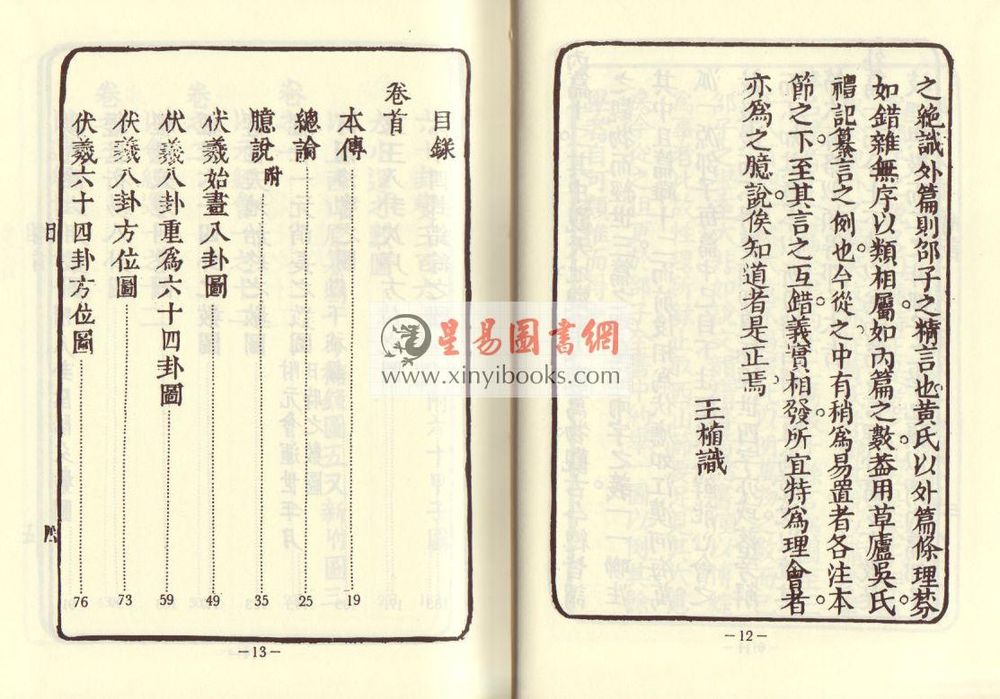 之絶識外篇則邵子之精言也黄氏以外篇條理棼
如錯雜無序以類相屬如内篇之數葢用草廬吳氏
禮記纂言之例也今從之中有稍為易置者各注本
節之下至其言之互錯義實相發所宜特為理會者
亦為之臆說俟知道者是正焉
王植識
—12—
目錄
卷首
本傳 19
總論 25
臆說 附 35
伏羲始畫八卦圖 49
伏羲八卦重為六十四卦圖 59
伏羲八卦方位圖 73
伏羲六十四卦方位圖 76
目
—13—
星易圖書網
www.xinyibooks.com